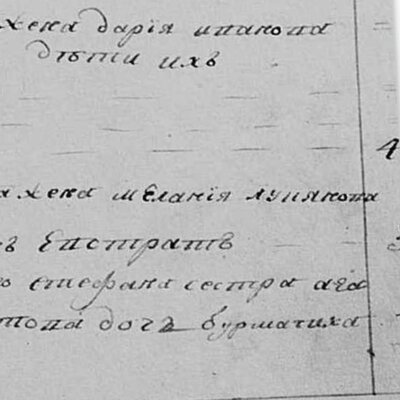 жена дарія ипакова
дѣти ихъ
4
а жена меланія лунякова
въ Епстратъ
о стефана сестра ага
това дочь бурматиха